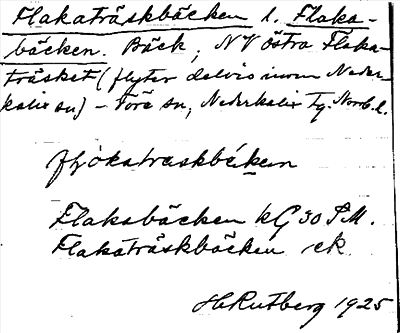 Flakaträskbäcken l. Flaka-
bäcken. Bäck, NV östra Flaka-
träsket (flyter delvis inom Neder-
kalix sn) – Töre sn, Nederkalix Tg. Norrb. l.
flökatraskbäken
Flakabäcken kG 30 SM.
Flakaträskbäcken ek.
H Rutberg 1925